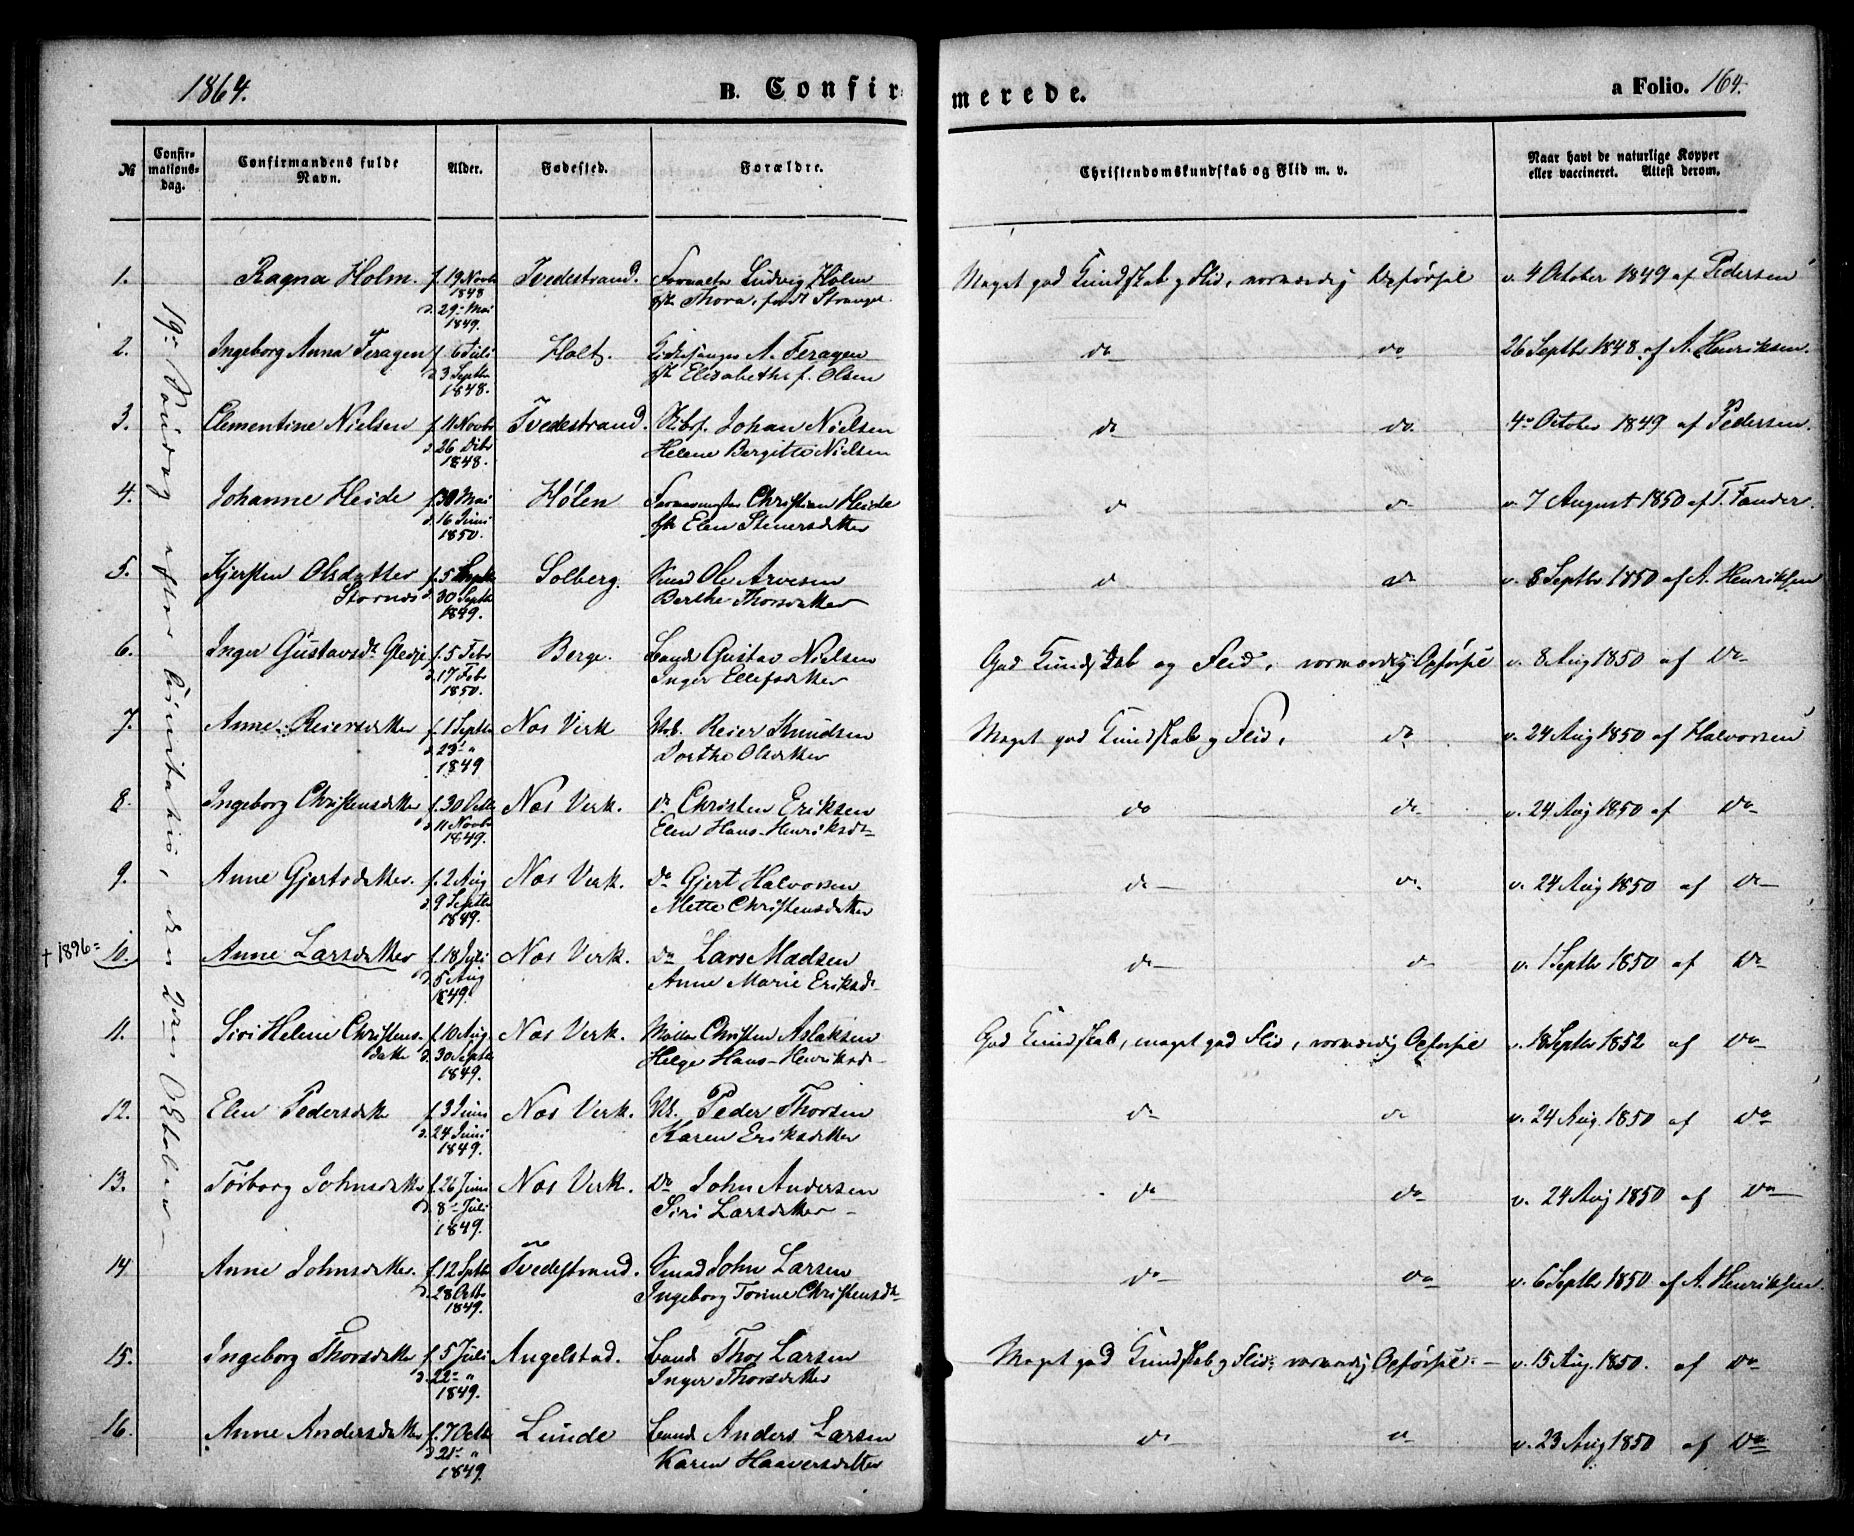 1864.
B. Confirmerede.
a Folio. 164.
№
Confir-
mations-
dag.
Confirmandens fulde
Navn.
Alder.
Fødested.
Forældre.
Christendomskundskab og Flid m. v.
Naar havt de naturlige Kopper
eller vaccineret. Attest derom.
19de Søndag efter Trinitatis, den 2den October
1. Ragna Holm. f. 19 Novbr Tvedestrand. Ludvig Holm Meget god Kundskab og Flid, særdeles Opførsel v. 4 October 1849 af Pedersen
1848 Thora, født Stranger
d. 29 Mai
1849.
2. Ingeborg Anna Feragen f. 6 Juli Holt. Kirkesanger A. Feragen do do 26 Septbr 1848 af A. Henriksen.
d. 3 Septbr Elisabeth f. Olsen
1848.
3. Clementine Nielsen f. 11 Novbr Tvedestrand. Skibsf. Johan Nielsen do do 4 October 1849 af Pedersen.
d. 26 Dcbr Helene Bergitte Nielsen
1848.
4. Johanne Heide f. 30 Mai Hølen Christian Heide do do v. 7 August 1850 af T. Fander.
d. 16 Juni Elen Stenersdatter
1850.
5. Kjersten Olsdatter f. 5 Septbr Solberg. Smed Ole Arvesen do do v. 8 Septbr 1850 af A. Henriksen
Stornes d. 30 Septbr Berthe Thorsdatter
1849.
6. Inger Gustavsdr Gledje f. 5 Febr Berge. Gaard. Gustav Nielsen God Kundskab og Flid, Opførsel v. 8 Aug 1850 af do
d. 17 Febr Inger Ellefsdatter
1850.
7. Anne Reiersdatter f. 1 Septbr Næs Verk Arb. Reier Knudsen Meget god Kundskab og Flid, do v. 24 Aug 1850 af Halvorsen
d. 23 " Dorthe Olsdatter
1849
8. Ingeborg Christensdatter f. 30 Octb Næs Verk. do Christen Eriksen do do v. 24 Aug 1850 af do
d. 11 Novbr Elen Hans-Henriksdr
1849.
9. Anne Gjertsdatter. f. 2 Aug Næs Verk. do Gjert Halvorsen do do v. 24 Aug 1850 af do
d. 9 Septbr Mette Christensdatter
1849.
† 1896 = 10. Anne Larsdatter f. 18 Juli Næs Verk. do Lars Madsen do do v. 1 Septbr 1850 af do
d. 5 Aug Anne Marie Eriksdr
1849.
11. Siri Helene Christens- f. 10 Aug. Næs Verk. Møller Christen Aslaksen God Kundskab, meget god Flid, Opførsel v. 18 Septbr 1852 af do
datter d. 30 Septbr Helge Hans-Henriksdr
1849.
12. Elen Pedersdatter f. 3 Juni Næs Verk. Arb. Peder Thorsen do do v. 24 Aug. 1850 af do
d. 24 Juni Karen Eriksdatter
1849.
13. Torborg Johnsdatter f. 26 Juni Næs Verk. do John Andersen do do v. 24 Aug 1850 af do
d. 8 Juli Siri Larsdatter
1849.
14 Anne Johnsdatter. f. 12 Septbr Tvedestrand. Smed John Larsen do do v. 6 Septbr 1850 af A. Henriksen.
d. 28 Octb Ingeborg Torine Christensdr
1849.
15. Ingeborg Thorsdatter f. 5 Juli Angelstad. Gaard. Thor Larsen Meget god Kundskab og Flid, Opførsel. v. 15 Aug. 1850. af do
d. 22 " Inger Thorsdatter
1849.
16. Anne Andersdatter f. 7 Octb Lunde Gaard. Anders Larsen do do v. 23 Aug 1850 af do
d. 21 " Karen Haaversdatter
1849.